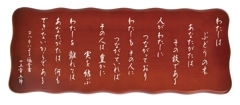 わたしは
ぶどうの木
あなたがたは
その枝である
人がわたしに
つながっており
わたしもその人に
つながっていれば
その人は豊かに
実を結ぶ
わたしを離れては
あなたがたは何も
できないからである
ヨハネ福音書
十五章五節